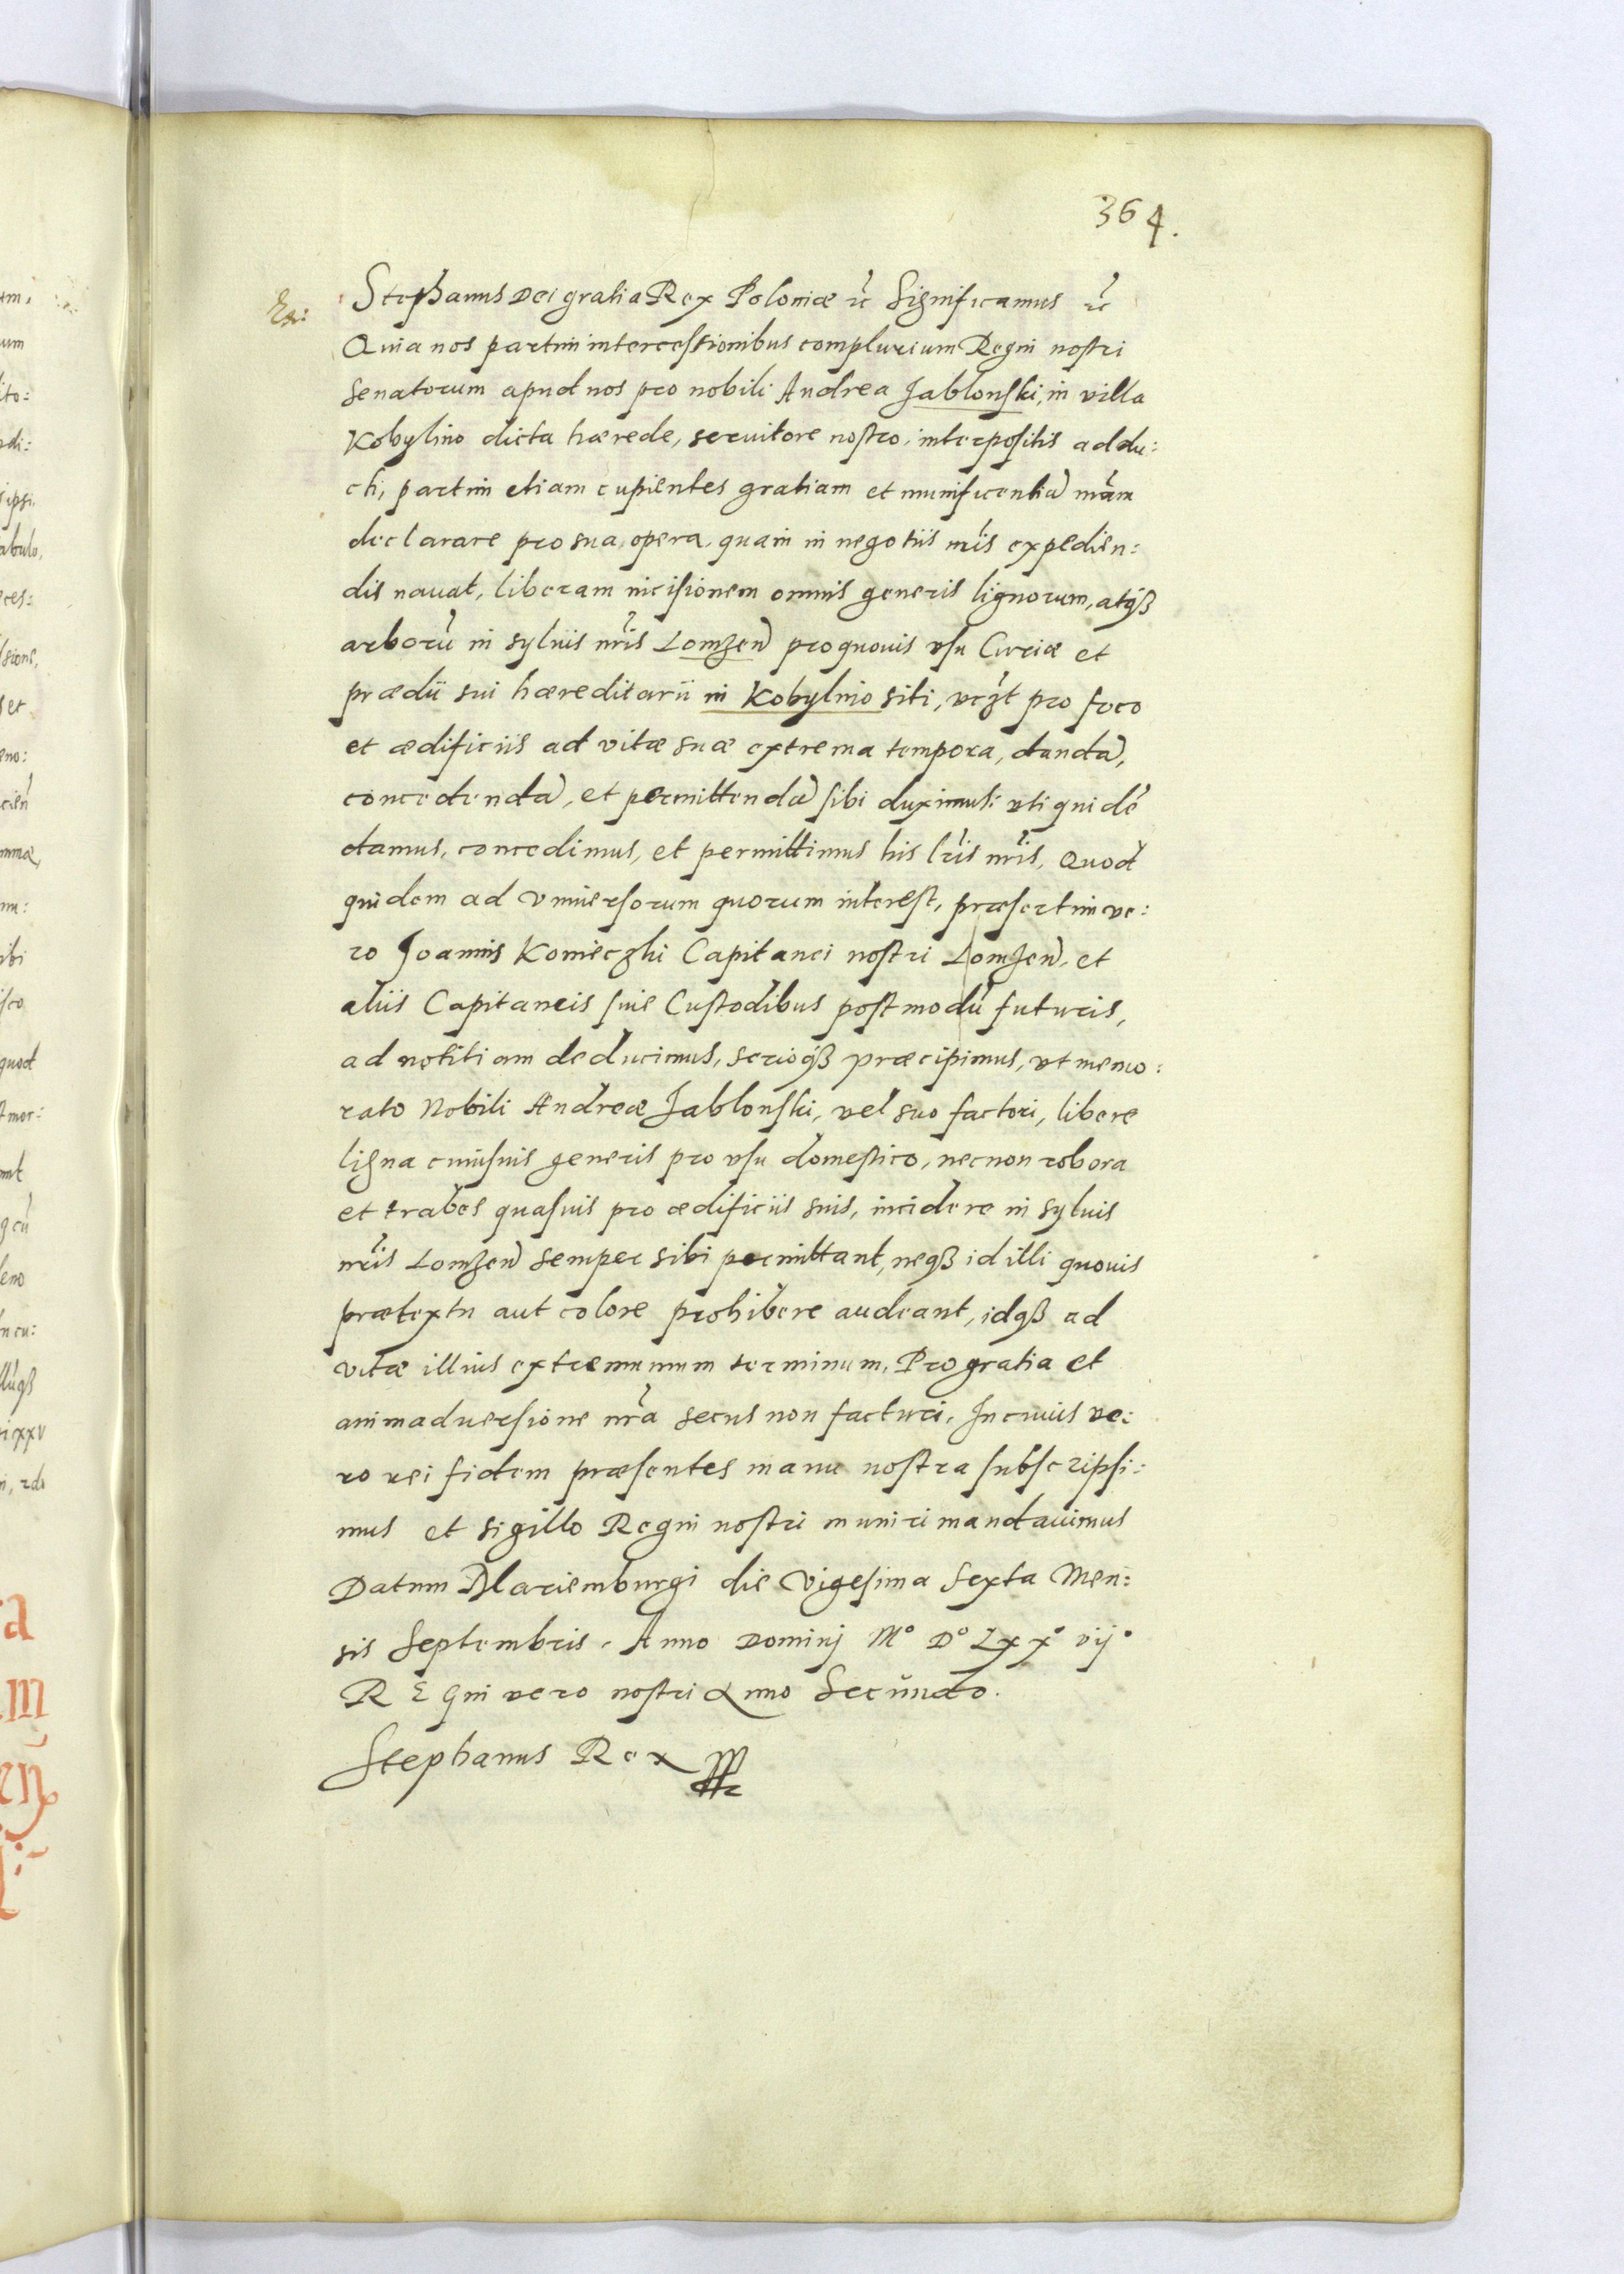 364.
Ex:
Stephanus Dei gratia Rex Poloniæ rc̃ Significamus rc̃
Quia nos partim intercessionibus complurium Regni nostri
Senatorum apud nos pro nobili Andrea Jablonski, in villa
Kobylino dicta hærede, seruitore nostro, interpositis addu:
cti, partim etiam cupientes gratiam et munificentiã nr̃am
declarare pro sua opera, quam in negotiis nr̃is expedien:
dis nauat, liberam incisionem omnis generis lignorum, atqß
arborũ in syluis nr̃is Lomzeñ pro quouis vsu Curiæ et
prædii sui hæreditarii in Kobylino siti, vcz̃t pro foco
et ædificiis ad vitæ suæ extrema tempora, dandã,
concedendã, et permittendã sibi duximus: uti quidẽ
damus, concedimus, et permittimus his lr̃is nr̃is, Quod
quidem ad vniuersorum quorum interest, præsertim ve:
ro Joannis Konieczki Capitanei nostri Lomzeñ, et
aliis Capitaneis siue Custodibus postmodũ futuris,
ad notitiam deducimus, serioqß præcipimus, vt memo:
rato Nobili Andreæ Jablonski, vel suo factori, libere
ligna cuiusuis generis pro vsu domestico, necnon robora
et trabes quasuis pro ædificiis suis, incidere in syluis
nr̃is Lomzeñ semper sibi permittant, neqß id illi quouis
prætextu aut colore prohibere audeant, idqß ad
vitæ illius extremumum terminum, Pro gratia et
animaduersione nr̃a secus non facturi, In cuius ve:
ro rei fidem præsentes manu nostra subscripsi:
mus et sigillo Regni nostri muniri mandauimus
Datum Mariemburgi die Vigesima Sexta Men:
sis Septembris. Anno Dominj M° D° Lxx° vij°
REGni vero nostri Anno Secũndo.
Stephanus Rex